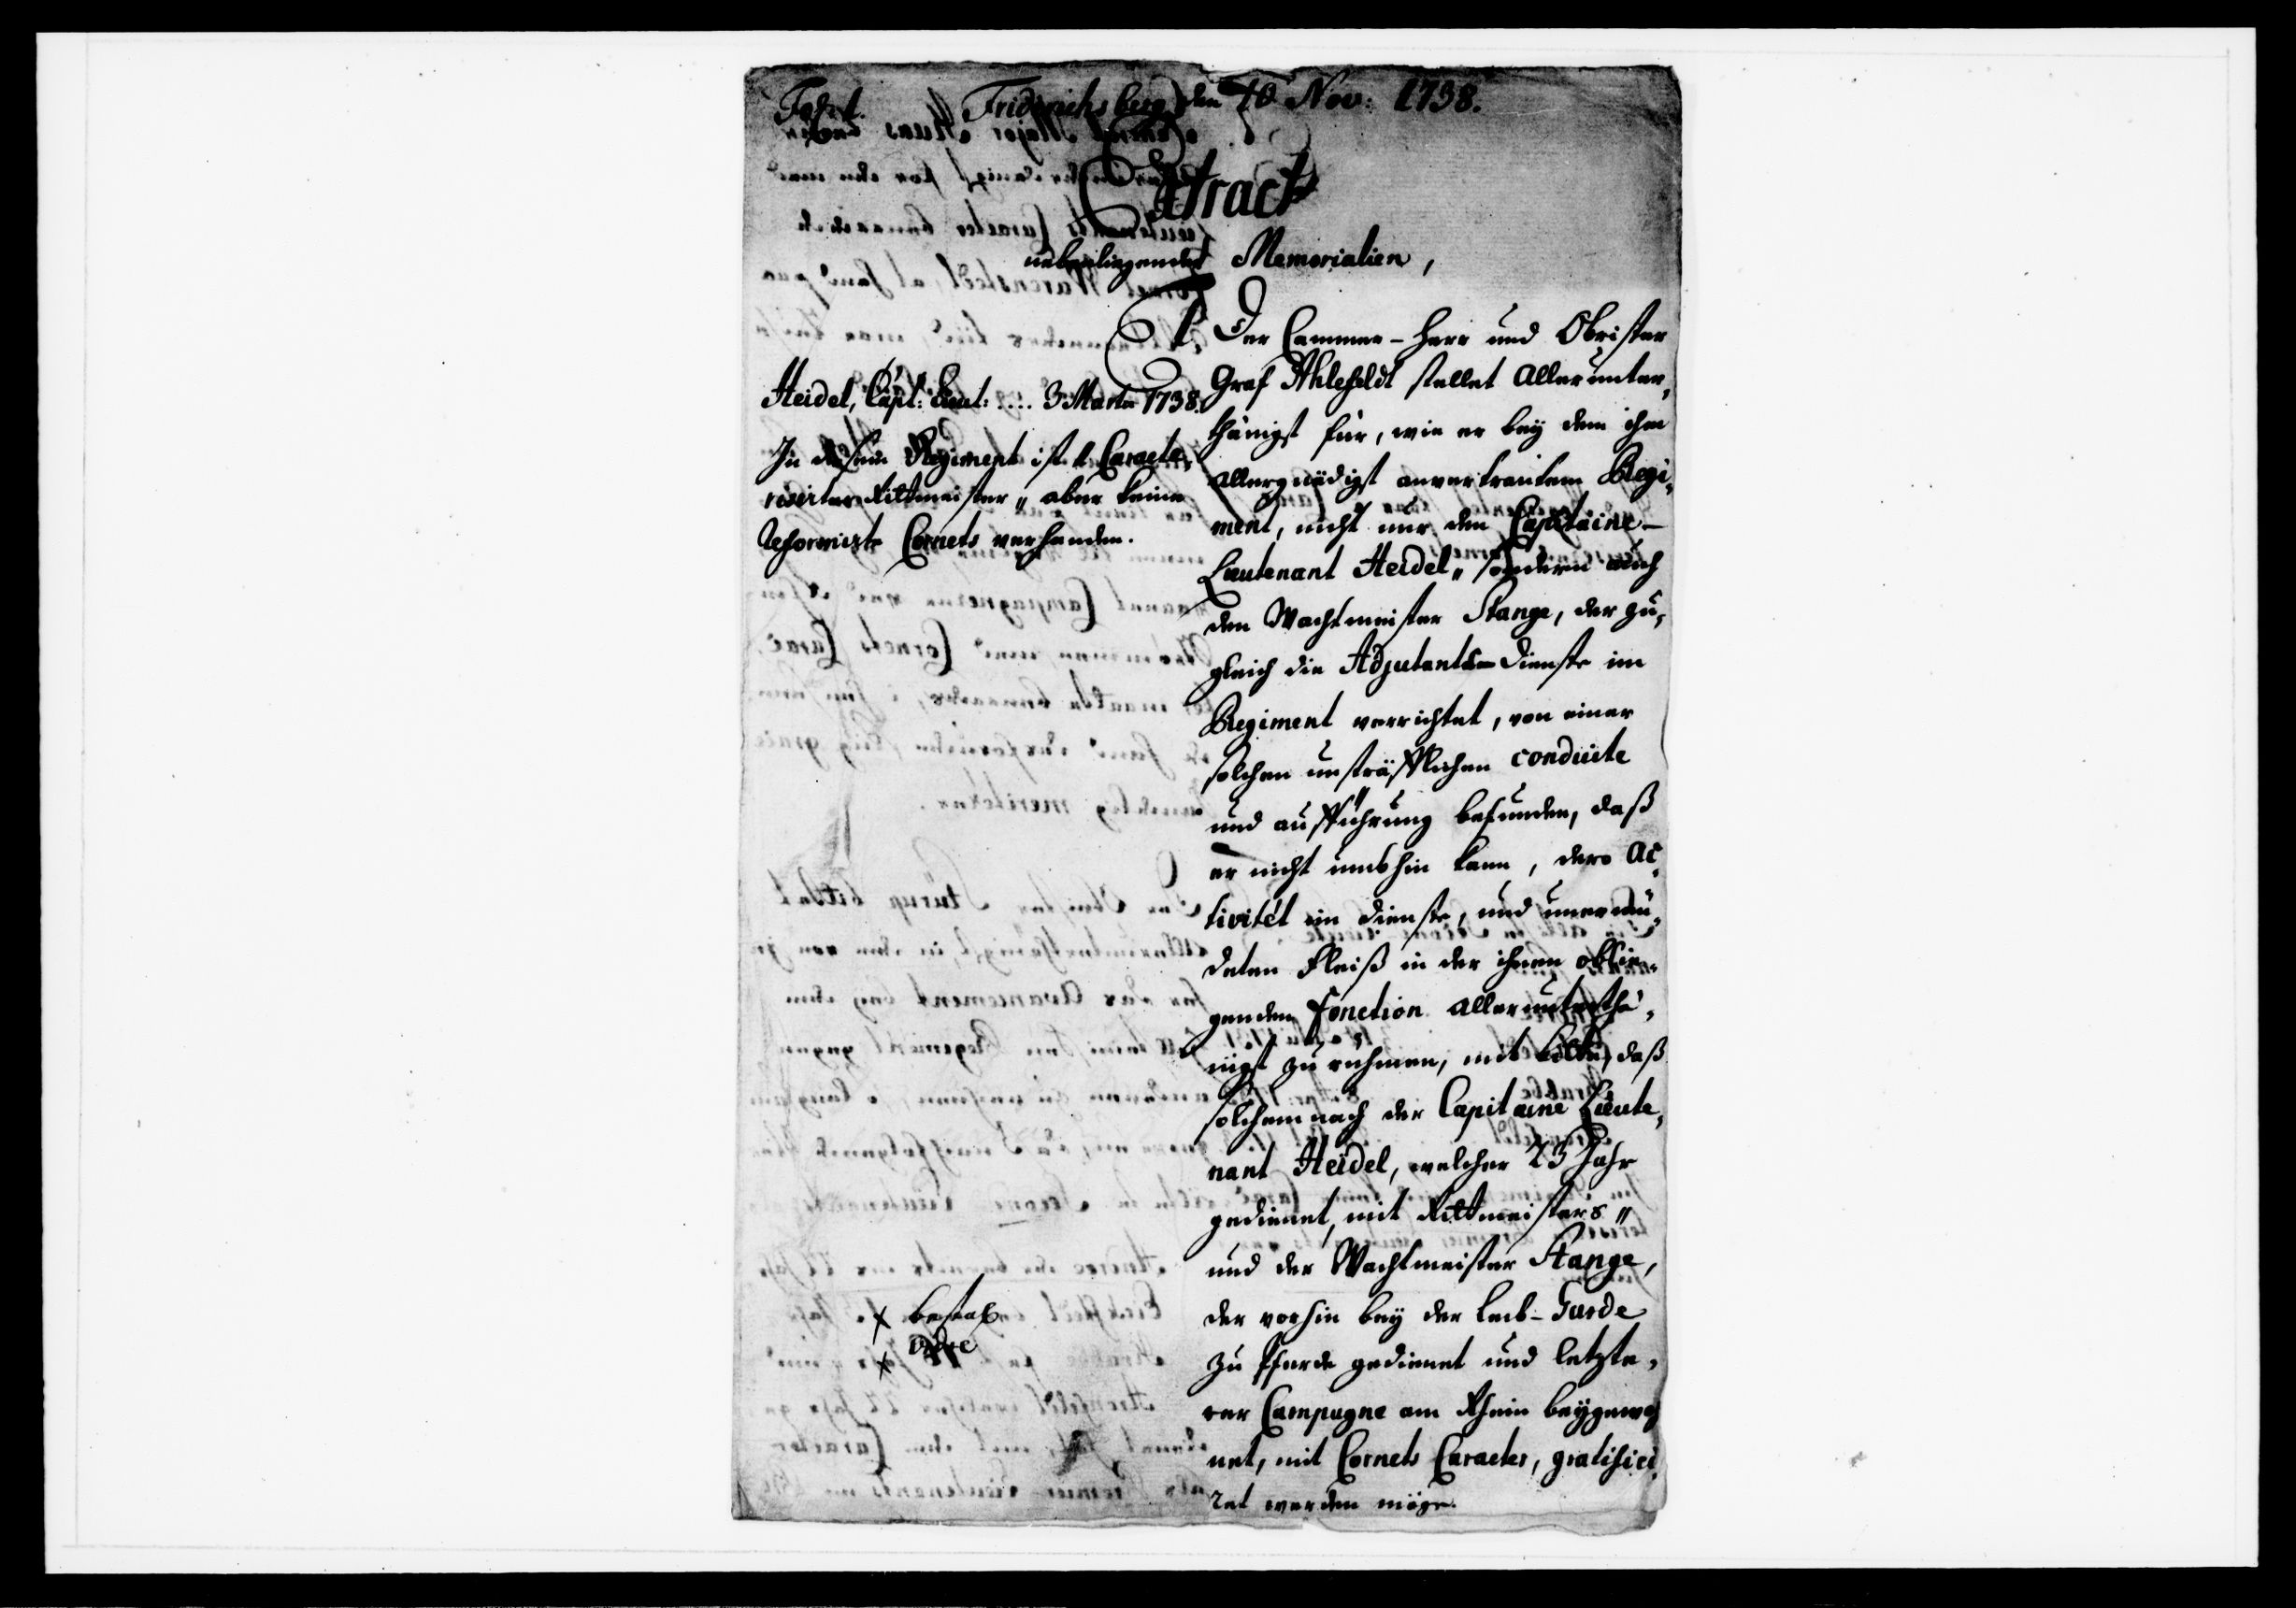 Friderichsberg den 10 Nov: 1738.
Extract
nebenliegender Memorialien,
Der Cammer-Herr und Obrister
Graf Ahlefeldt stellet allerunter-
thänigst für, wie er bey dem ihm
allergnädigst anvertrautem Regi-
ment, nicht nur den Capitaine-
Lieutenant Heidel„ sondern auch
den Wachtmeister Stange, der zu-
gleich die Adjutants-Dienste im
Regiment verrichtet, von einer
solchen unsträfflichen conduite
und aufführung befunden, daß
er nicht umbhin kann, dero ac-
tivitét im Dienste, und unermü-
deten Fleiß in der ihnen oblie-
genden Fonction allerunterthä-
nigst zu rühmen, mit Bitte, daß
solchemnach der Capitaine Lieute-
nant Heidel, welcher 23 Jahr
gedienet, mit Rittmeisters„
und der Wachtmeister Stange,
der vorhin bey der Leib-Garde
zu Pferde gedienet und letzte-
rer Campagne am Rhein beygewoh
net, mit Cornets Caracter, gratifici-
ret werden möge.
Heidel, Capt: Lieut: .... 3 Martii 1738.
In diesem Regiment ist 1 Caracte-
risirter Rittmeister„ aber keine
Reformirte Cornets verhanden.